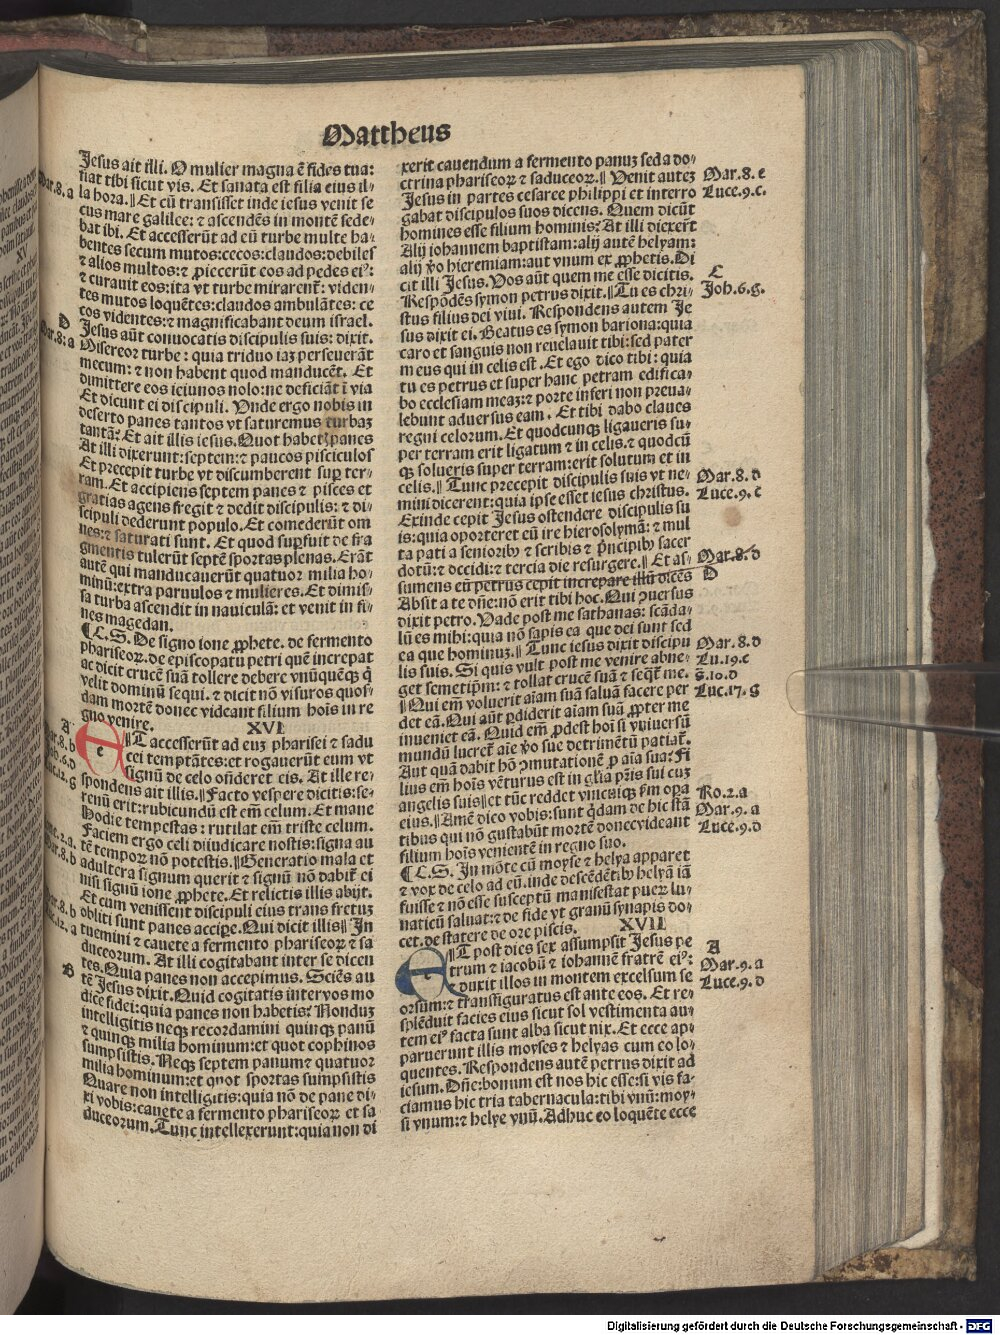 Mattheus
Jesus ait illi. O mulier magna ē fides tua:
fiat tibi sicut vis. Et sanata est filia eius il⸗
la hora.‖Et cū transisset inde iesus venit se
cus mare galilee: ⁊ ascendēs in montē sede⸗
bat ibi. Et accesserūt ad eū turbe multe ha⸗
bentes secum mutos:cecos:claudos:debiles
⁊ alios multos:⁊ ꝓiecerūt eos ad pedes eiꝰ:
⁊ curauit eos:ita vt turbe mirarent̄: viden⸗
tes mutos loquētes:claudos ambulātes: ce
cos videntes:⁊ magnificabant deum israel.
Jesus aūt conuocatis discipulis suis: dixit.
Misereor turbe : quia triduo iaꝫ perseuerāt
mecum: ⁊ non habent quod manducēt. Et
dimittere eos ieiunos nolo:ne deficiāt ī via
Et dicunt ei discipuli. Vnde ergo nobis in
deserto panes tantos vt saturemus turbaꝫ
tantā? Et ait illis iesus. Quot habetꝭ panes
At illi dixerunt:septem:⁊ paucos pisciculos
Et precepit turbe vt discumberent suꝑ ter⸗
ram. Et accipiens septem panes ⁊ pisces et
gratias agens fregit ⁊ dedit discipulis: ⁊ di⸗
scipuli dederunt populo. Et comederūt om
nes:⁊ saturati sunt. Et quod suꝑfuit de fra
gmentis tulerūt septē sportas plenas. Erāt
autē qui manducauerūt quatuor milia ho⸗
minū:extra paruulos ⁊ mulieres. Et dimis⸗
sa turba ascendit in nauiculā: et venit in fi⸗
nes magedan.
¶C.S. De signo ione ꝓphete. de fermento
phariseoꝝ.de episcopatu petri quē increpat
ac dicit crucē suā tollere debere vnūquēqꝫ ꝗ
velit dominū sequi. ⁊ dicit nō visuros quos⸗
dam mortē donec videant filium hoīs in re
gno venire. XVI
ET accesserūt ad euꝫ pharisei ⁊ sadu
cei temptātes:et rogauerūt eum vt
signū de celo oñderet eis. At ille re⸗
spondens ait illis.‖Facto vespere dicitis:se⸗
renū erit:rubicundū est em̄ celum. Et mane
Hodie tempestas : rutilat em̄ triste celum.
Faciem ergo celi diiudicare nostis:signa au
tē tempoꝝ nō potestis.‖Generatio mala et
adultera signum querit ⁊ signū nō dabit̄ ei
nisi signū ione ꝓphete. Et relictis illis abijt.
Et cum venissent discipuli eius trans fretuꝫ
obliti sunt panes accipe. Qui dicit illis‖ In
tuemini ⁊ cauete a fermento phariseoꝝ ⁊ sa
duceorum. At illi cogitabant inter se dicen
tes. Quia panes non accepimus. Sciēs au
tē Jesus dixit. Quid cogitatis inter vos mo
dice fidei:quia panes non habetis? Nonduꝫ
intelligitis neqꝫ recordamini quinqꝫ panū
⁊ quinqꝫ milia hominum:et quot cophinos
sumpsistis. Neqꝫ septem panum⁊ quatuor
milia hominum:et quot sportas sumpsistis
Quare non intelligitis:quia nō de pane di⸗
xi vobis:cauete a fermento phariseoꝝ et sa
duceorum. Tunc intellexerunt:quia non di
xerit cauendum a fermento panuꝫ sed a do⸗
ctrina phariseoꝝ ⁊ saduceoꝝ.‖ Venit auteꝫ
Jesus in partes cesaree philippi et interro
gabat discipulos suos dicens. Quem dicūt
homines esse filium hominis? At illi dixerūt
Alij iohannem baptistam:alij autē helyam:
alij ṽo hieremiam:aut vnum ex ꝓphetis. Di
cit illi Jesus. Vos aūt quem me esse dicitis.
Respōdēs symon petrus dixit.‖Tu es chri⸗
stus filius dei viui. Respondens autem Je
sus dixit ei. Beatus es symon bariona:quia
caro et sanguis non reuelauit tibi:sed pater
meus qui in celis est. Et ego dico tibi : quia
tu es petrus et super hanc petram edifica⸗
bo ecclesiam meaꝫ:⁊ porte inferi non preua⸗
lebunt aduersus eam . Et tibi dabo claues
regni celorum. Et quodcunqꝫ ligaueris su⸗
per terram erit ligatum ⁊ in celis.⁊ quodcū
qꝫ solueris super terram:erit solutum et in
celis.‖ Tunc precepit discipulis suis vt ne⸗
mini dicerent:quia ipse esset iesus christus.
Exinde cepit Jesus ostendere discipulis su
is:quia oporteret eū ire hierosolymā: ⁊ mul
ta pati a seniorib⁹ ⁊ scribis ⁊ p̄ncipib⁹ sacer
dotū:⁊ occidi:⁊ tercia die resurgere.‖ Et as⸗
sumens eū petrus cepit increpare illū dicēs
Absit a te dñe:nō erit tibi hoc. Qui ꝯuersus
dixit petro. Vade post me sathanas: scāda⸗
lū es mihi:quia nō sapis ea que dei sunt sed
ea que hominuꝫ.‖ Tunc iesus dixit discipu
lis suis. Si quis vult post me venire abne⸗
get semetip̄m: ⁊ tollat crucē suā ⁊ seqt̄ me.
‖Qui em̄ voluerit aīam suā saluā facere per
det eā. Qui aūt ꝑdiderit aīam suā ꝓpter me
inueniet eā. Quid em̄ ꝓdest hoī si vniuersū
mundū lucret̄ aīe ṽo sue detrimētū patiat̄.
Aut quā dabit hō ꝯmutationē ꝓ aīa sua? Fi
lius em̄ hoīs vēturus est in gl̄ia pr̄is sui cuꝫ
angelis suis‖et tūc reddet vnicuiqꝫ ẜm oꝑa
eius.‖Amē dico vobis:sunt ꝗdam de hic stā
tibus qui nō gustabūt mortē donec videant
filium hoīs venientē in regno suo.
¶C.S. In mōte cū moyse ⁊ helya apparet
⁊ vox de celo ad eū.inde descēdētib⁹ helyā iā
fuisse ⁊ nō esse susceptū manifestat pueꝝ lu⸗
naticū saluat:⁊ de fide vt granū synapis do⸗
cet.de statere de ore piscis. XVII
ET post dies sex assumpsit Jesus pe
trum ⁊ iacobū ⁊ iohannē fratrē eiꝰ:
⁊ duxit illos in montem excelsum se
orsum:⁊ transfiguratus est ante eos. Et re⸗
splēduit facies eius sicut sol vestimenta au⸗
tem eiꝰ facta sunt alba sicut nix. Et ecce ap⸗
paruerunt illis moyses ⁊ helyas cum eo lo⸗
quentes. Respondens autē petrus dixit ad
iesum. Dñe:bonum est nos hic esse:si vis fa⸗
ciamus hic tria tabernacula:tibi vnū:moy⸗
si vnum:⁊ helye vnū. Adhuc eo loquēte ecce
Mar.8.a
D
Mar.8.a
A
B
Mar.8.e
Luce.9.c.
C
Joh.6.g.
Mar.8.d
Luce.9.c
Mar.8.d
D
Mar.8.d
Lu.19.c
⁊.10.d
Luc.17.g
Ro.2.a
Mar.9.a
Luce.9.d
A
Mar.9.a
Luce.9.d
Digitalisierung gefördert durch die Deutsche Forschungsgemeinschaft - DFG